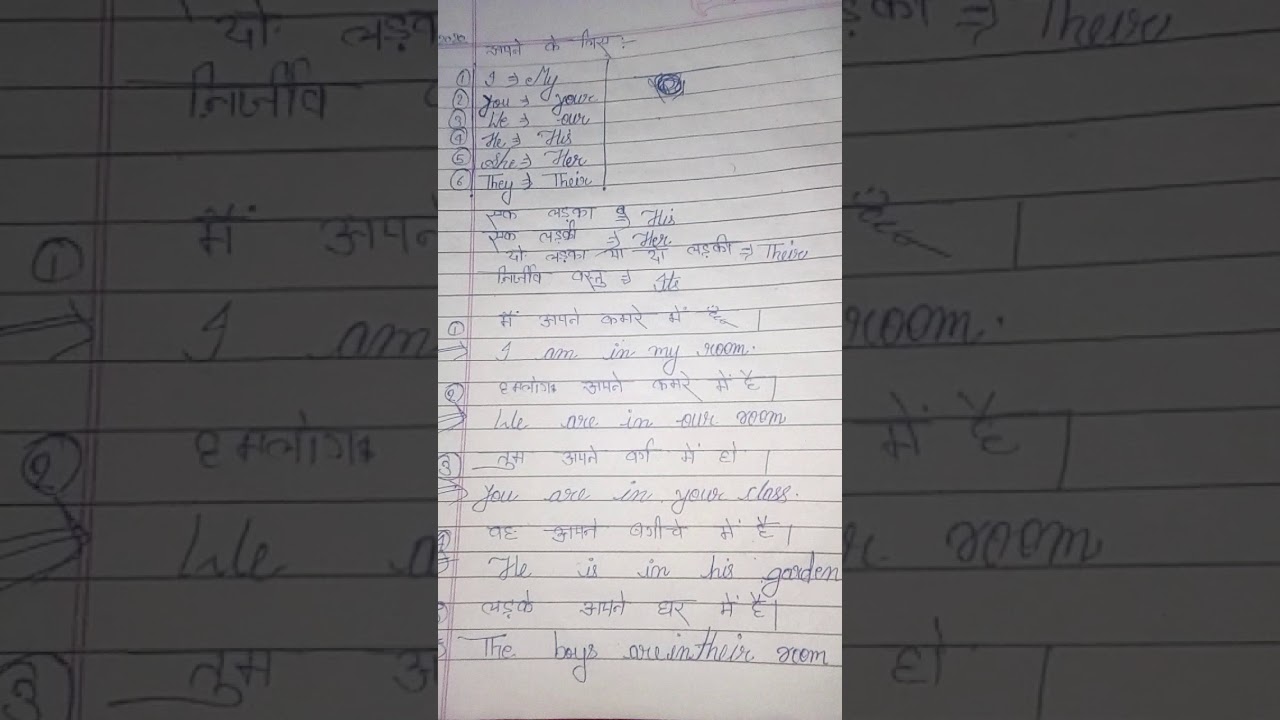 अपने के लिए :-
① I ⇒ My
② You ⇒ your
③ We ⇒ our
④ He ⇒ His
⑤ She ⇒ Her
⑥ They ⇒ Their
एक लड़का ⇒ His
एक लड़की ⇒ Her
दो लड़का या दो लड़की ⇒ Their
निर्जीव वस्तु ⇒
① मैं अपने कमरे में हूँ |
I am in my room.
② हमलोग अपने कमरे में है |
We are in our room
③ तुम अपने वर्ग में हो |
You are in your class.
④ वह अपने बगीचे में है |
He is in his garden
लड़के अपने घर में है |
The boys are in their room